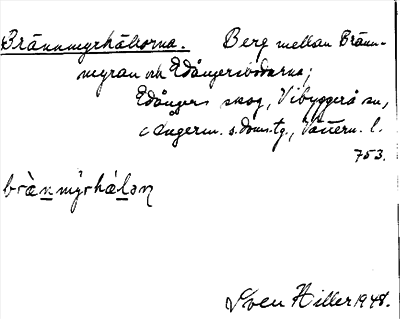 Brännmyrhållorna. Berg mellan Bränn-
myran och Edångersbodarna;
Edångers skog, Vibyggerå sn,
Ångerm. s. doms.tg., Västern. l.
753.
brànmy̆rhálən
Sven Hiller 1948.